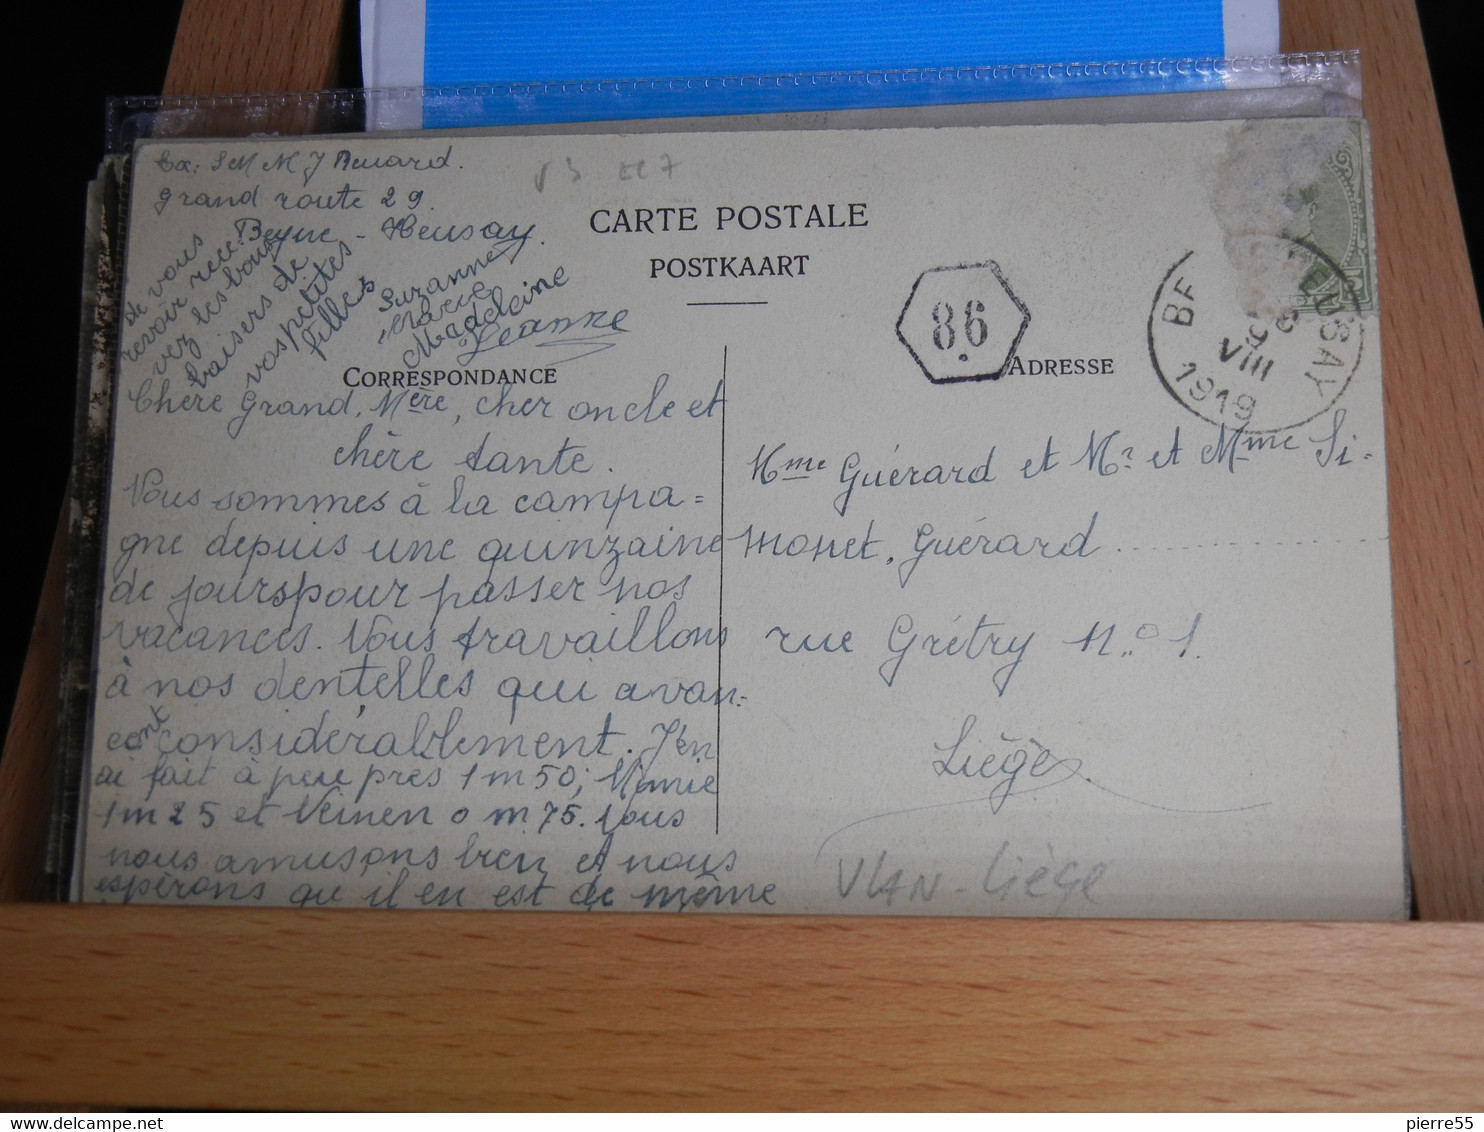 Ex: S M M J Renard.
Grand route 29.
Beyne - Heusay.
CARTE POSTALE
POSTKAART
86
BE HEUSAY
VIII
1919
CORRESPONDANCE
ADRESSE
Chère Grand, Mère, cher oncle et
chère tante.
Nous sommes à la campa =
gne depuis une quinzaine
de jours pour passer nos
vacances. Nous travaillons
à nos dentelles qui avan-
cent considérablement. J'en
ai fait à peu près 1 m 50; Mimie
1 m 25 et 0 m 75. Nous
nous amusons bien et nous
espérons qu'il en est de même
de vous
revoir rece
vez les bons
baisers de
vos petites
filles
Suzanne
Marie
Madeleine
Jeanne
Mme Guérard et Mr et Mme Si-
monet, Guérard
rue Grétry No 1.
Liège.
VLAN - Liège
pierre55